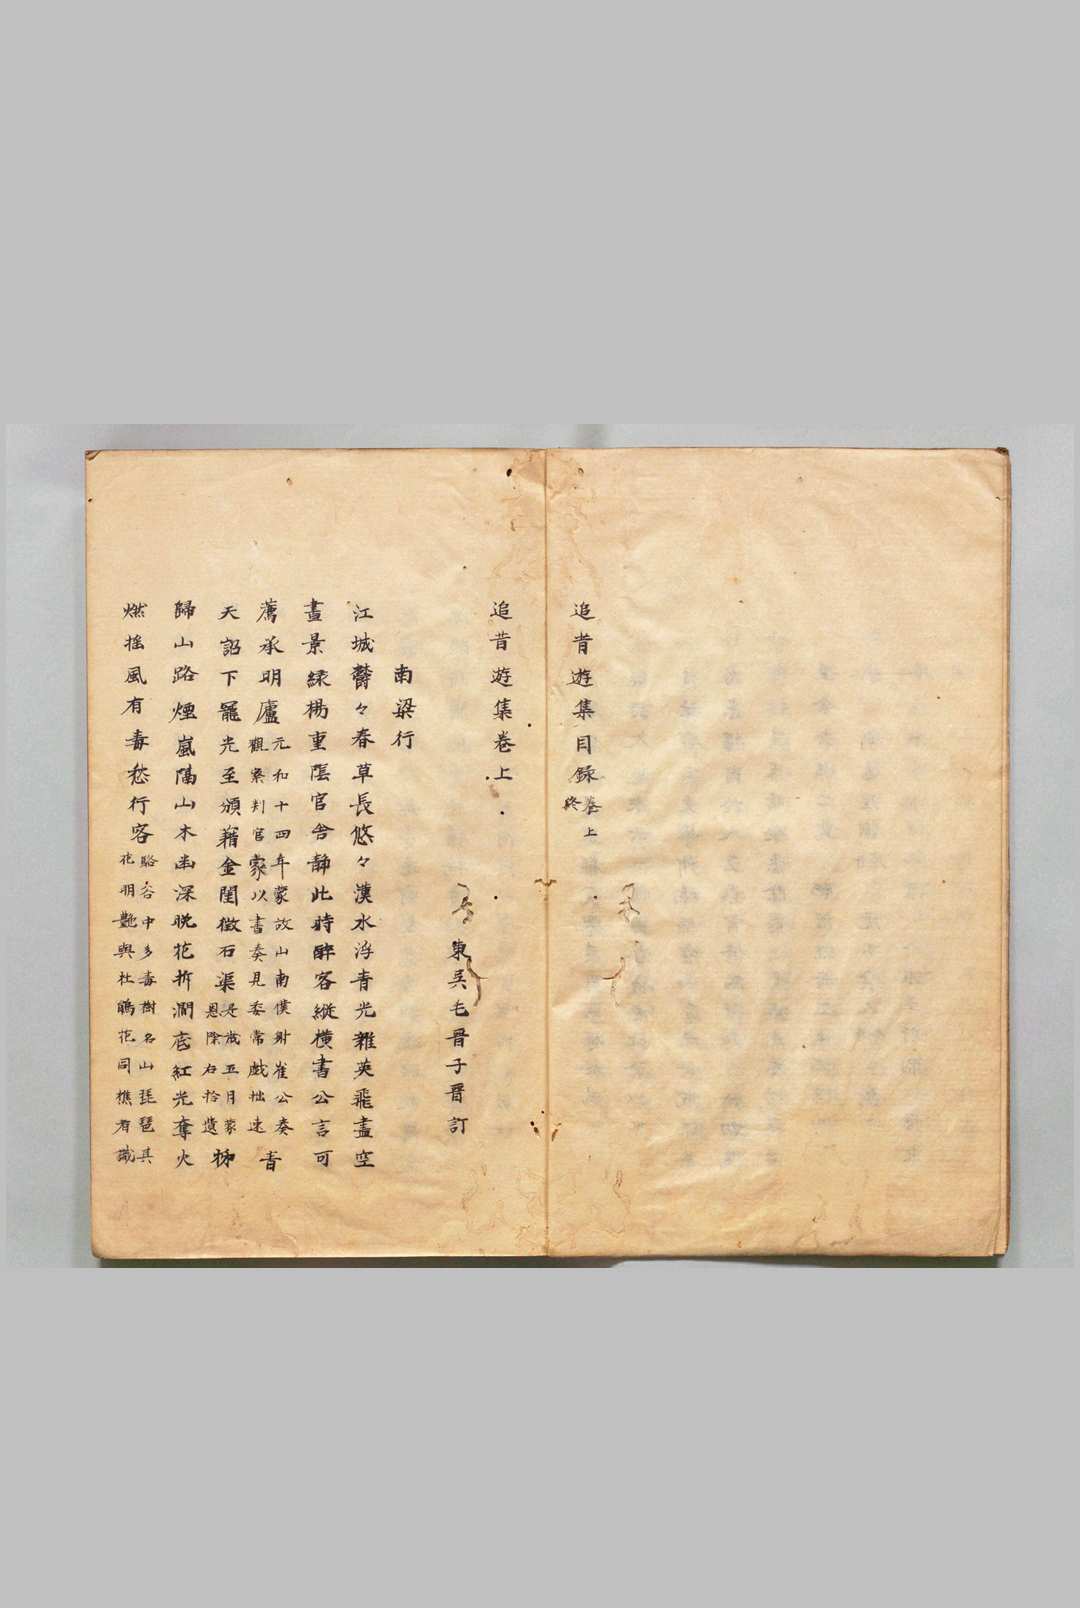 追昔遊集目録卷上終
追昔遊集卷上
東吳毛晋子晋訂
南梁行
江城欝々春草長悠々漢水浮青光雜英飛盡空
晝景緑楊重隂官舍静此時醉客縦横書公言可
薦承明廬元和十四年蒙故山南僕射崔公奏觀察判官蒙以書奏見委常戯拙速青
天詔下寵光至頒籍金閨徵石渠是歳五月蒙恩除右拾遺秭
歸山路煙嵐隔山木幽深晩花拆澗底紅光奪火
燃摇風有毒愁行客駱谷中多毒樹名山琵琶其花明艷與杜鵑花同樵者識